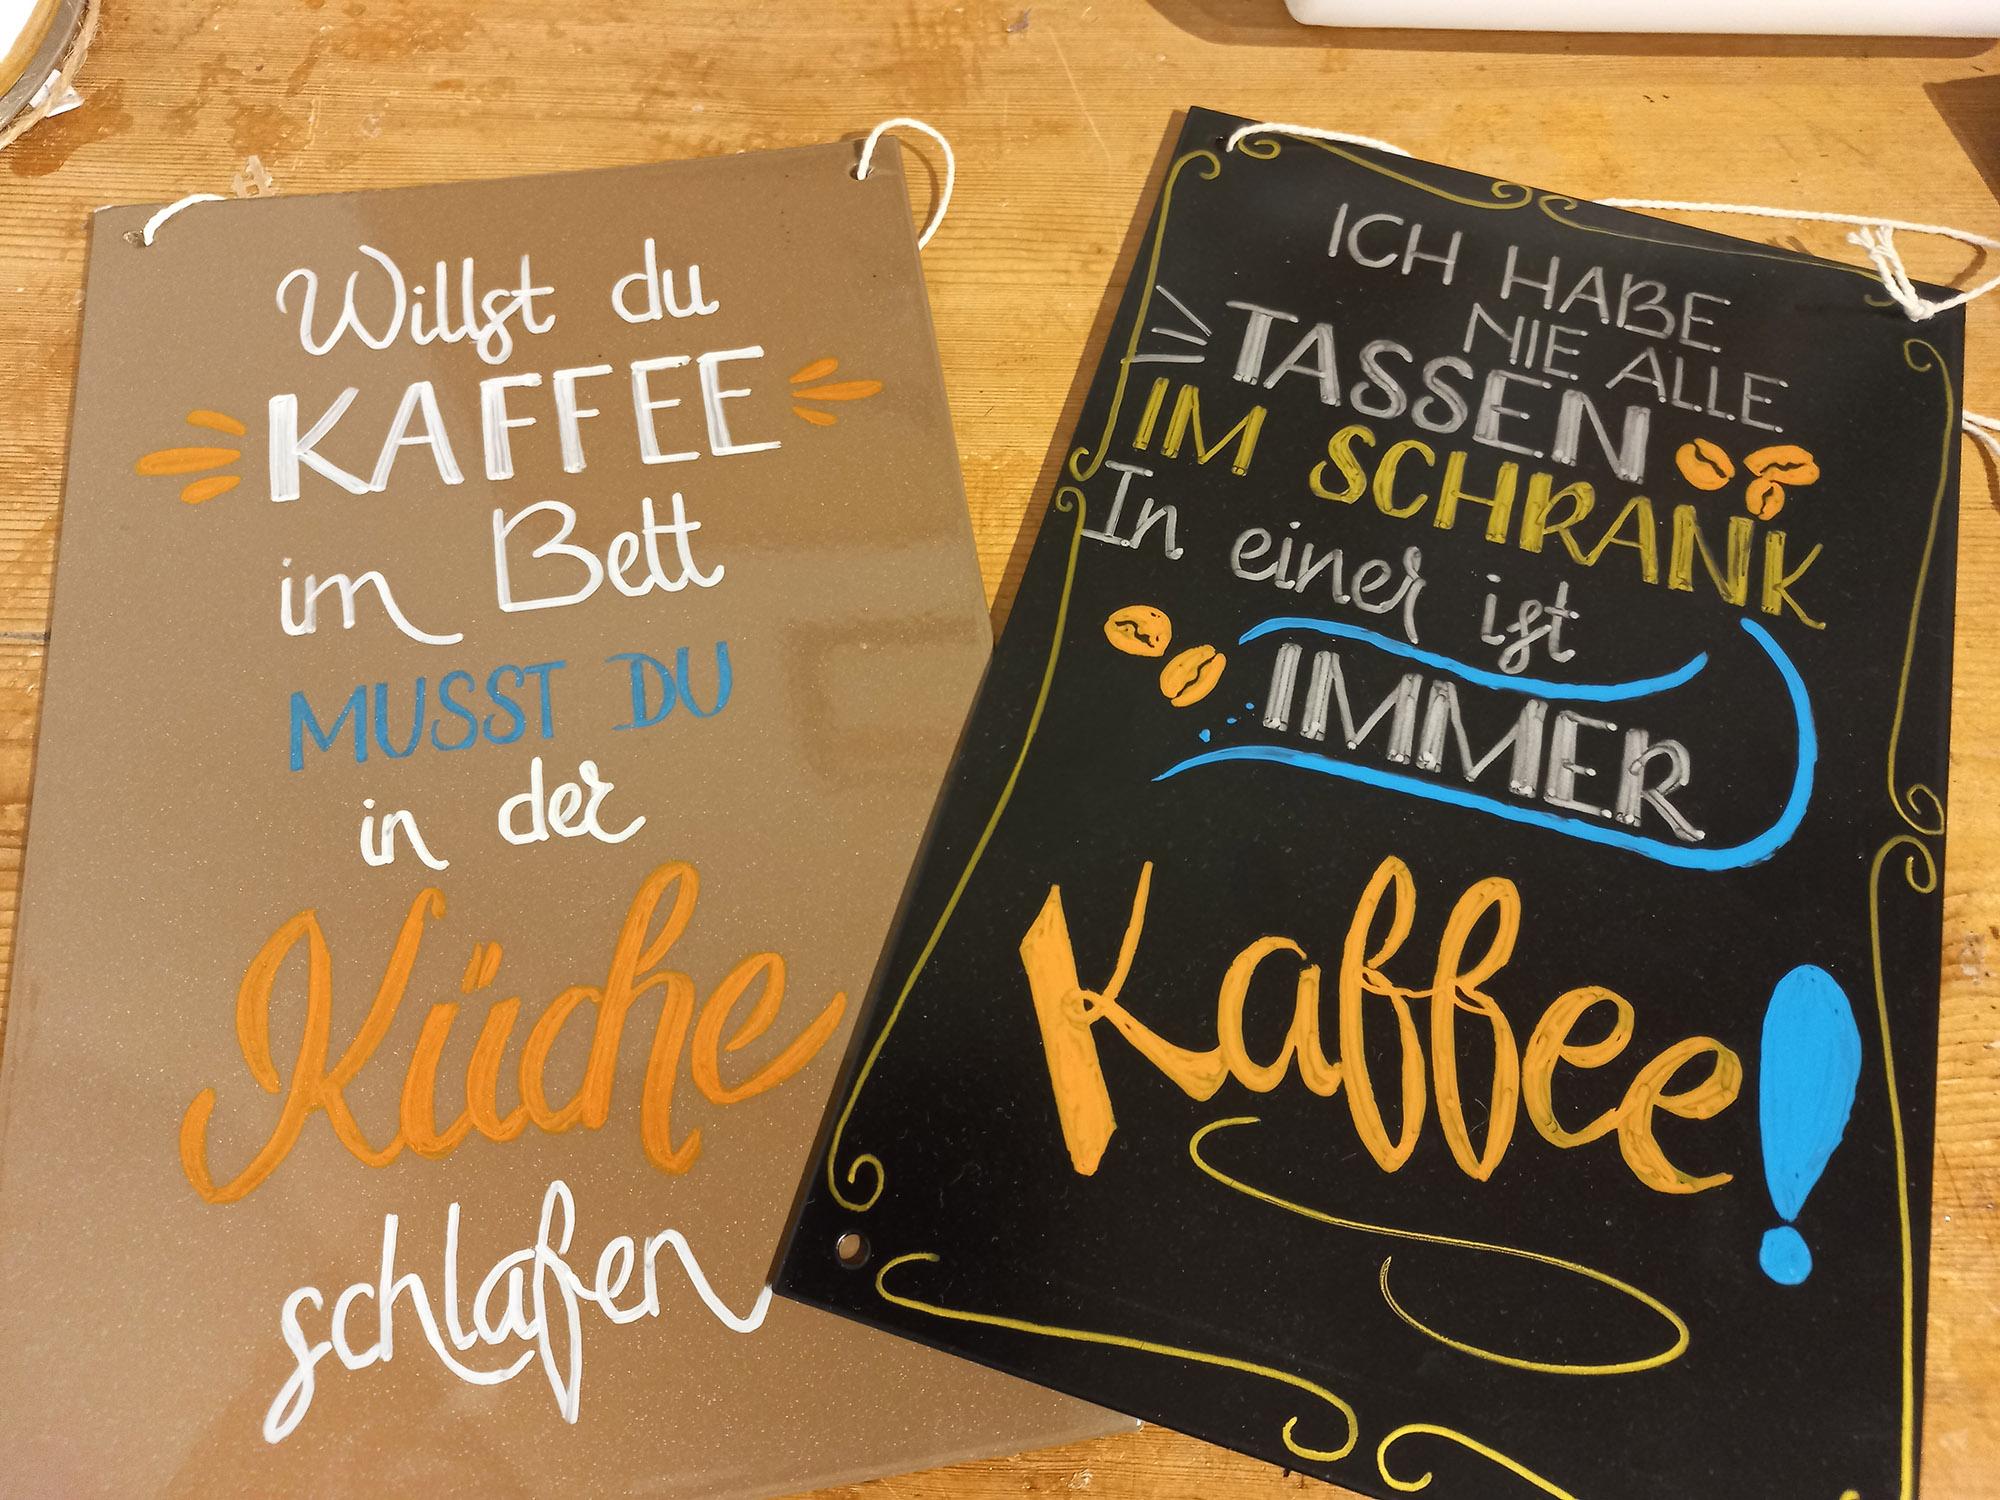 Willst du
KAFFEE
im Bett
MUSST DU
in der
Küche
schlafen
ICH HABE
NIE ALLE
TASSEN
IM SCHRANK
In einer ist
IMMER
Kaffee!